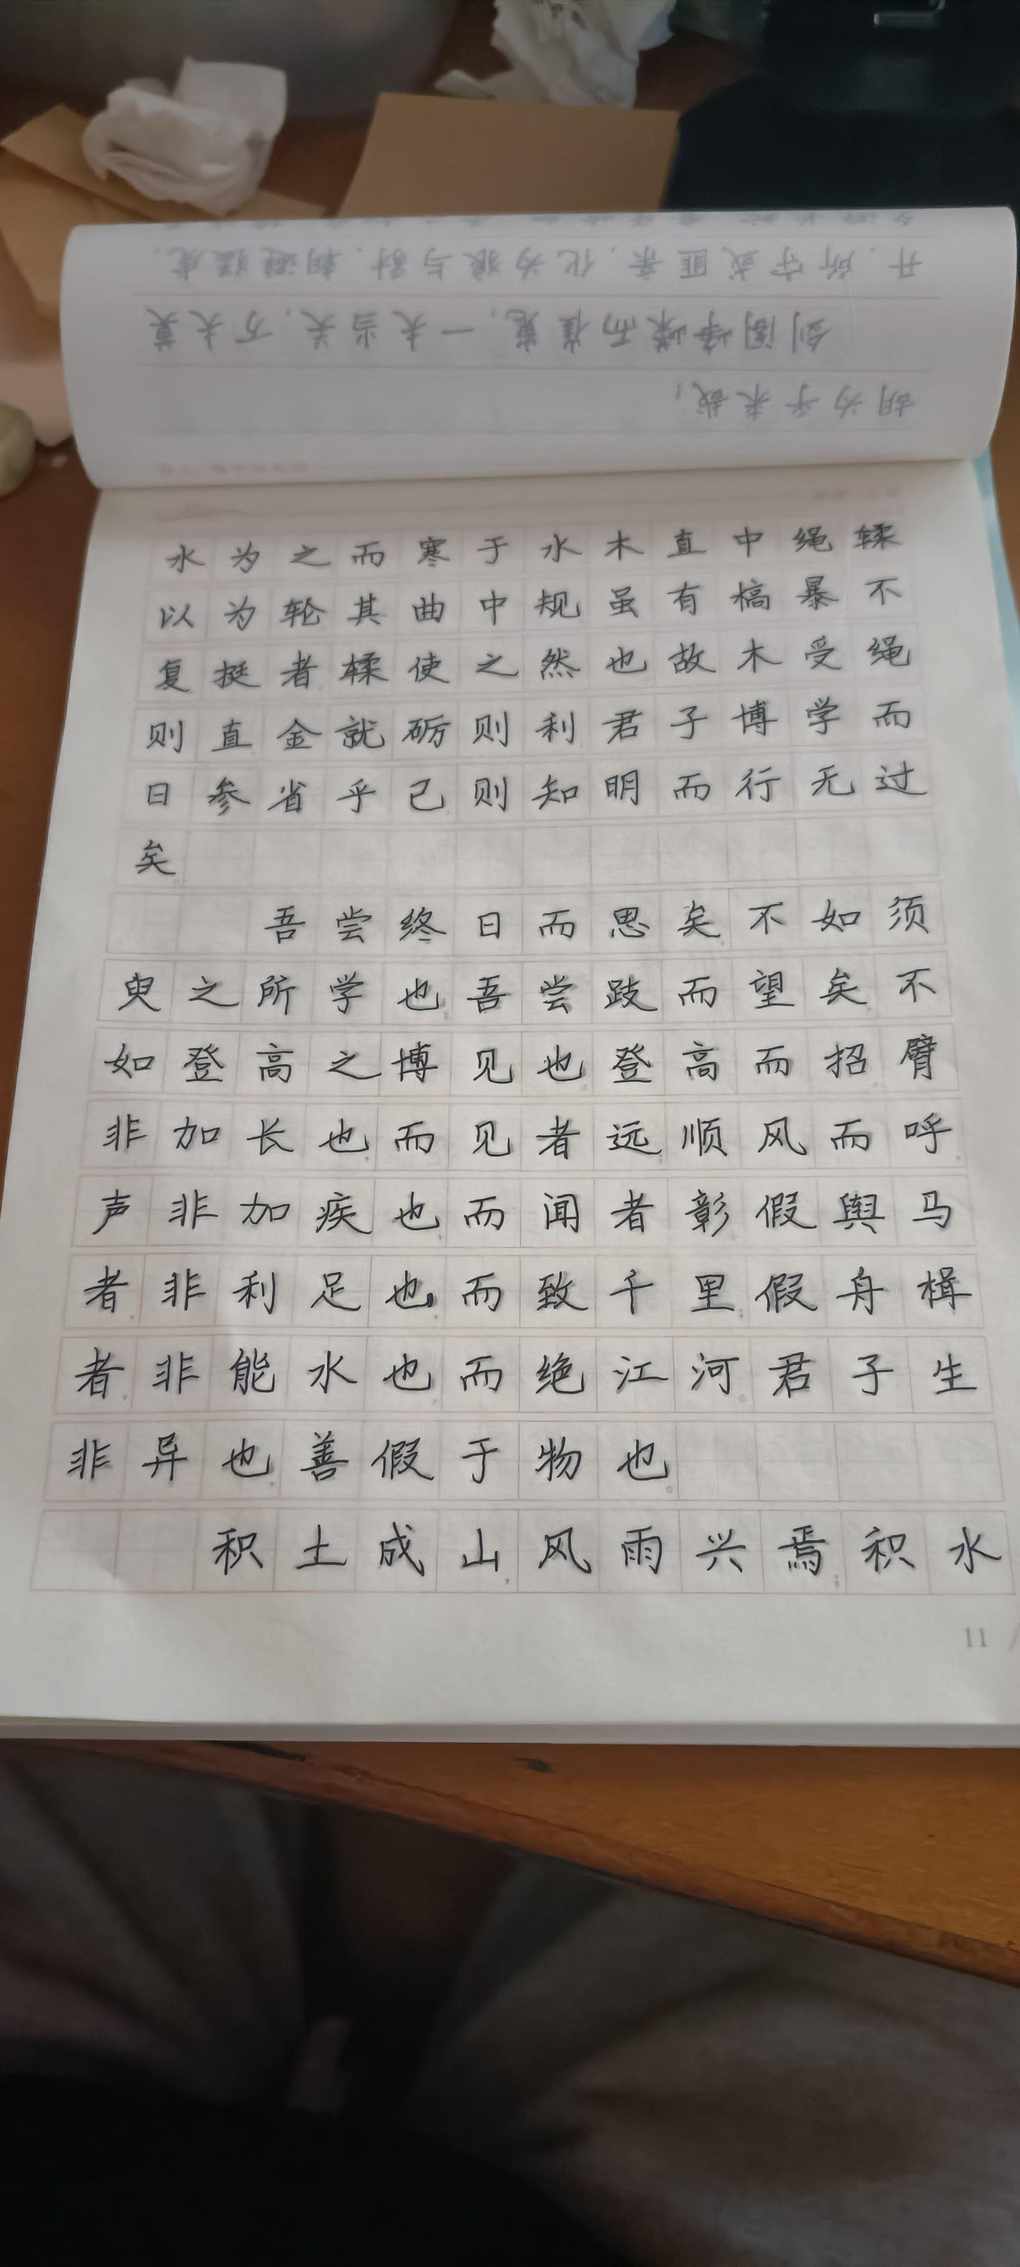 胡为乎来哉！
剑阁峥嵘而崔嵬，一夫当关，万夫莫
开。所守或匪亲，化为狼与豺。朝避猛虎，
水为之而寒于水木直中绳輮
以为轮其曲中规虽有槁暴不
复挺者輮使之然也故木受绳
则直金就砺则利君子博学而
日参省乎己则知明而行无过
矣
吾尝终日而思矣不如须
臾之所学也吾尝跂而望矣不
如登高之博见也登高而招臂
非加长也而见者远顺风而呼
声非加疾也而闻者彰假舆马
者非利足也而致千里假舟楫
者非能水也而绝江河君子生
非异也善假于物也
积土成山风雨兴焉积水
11